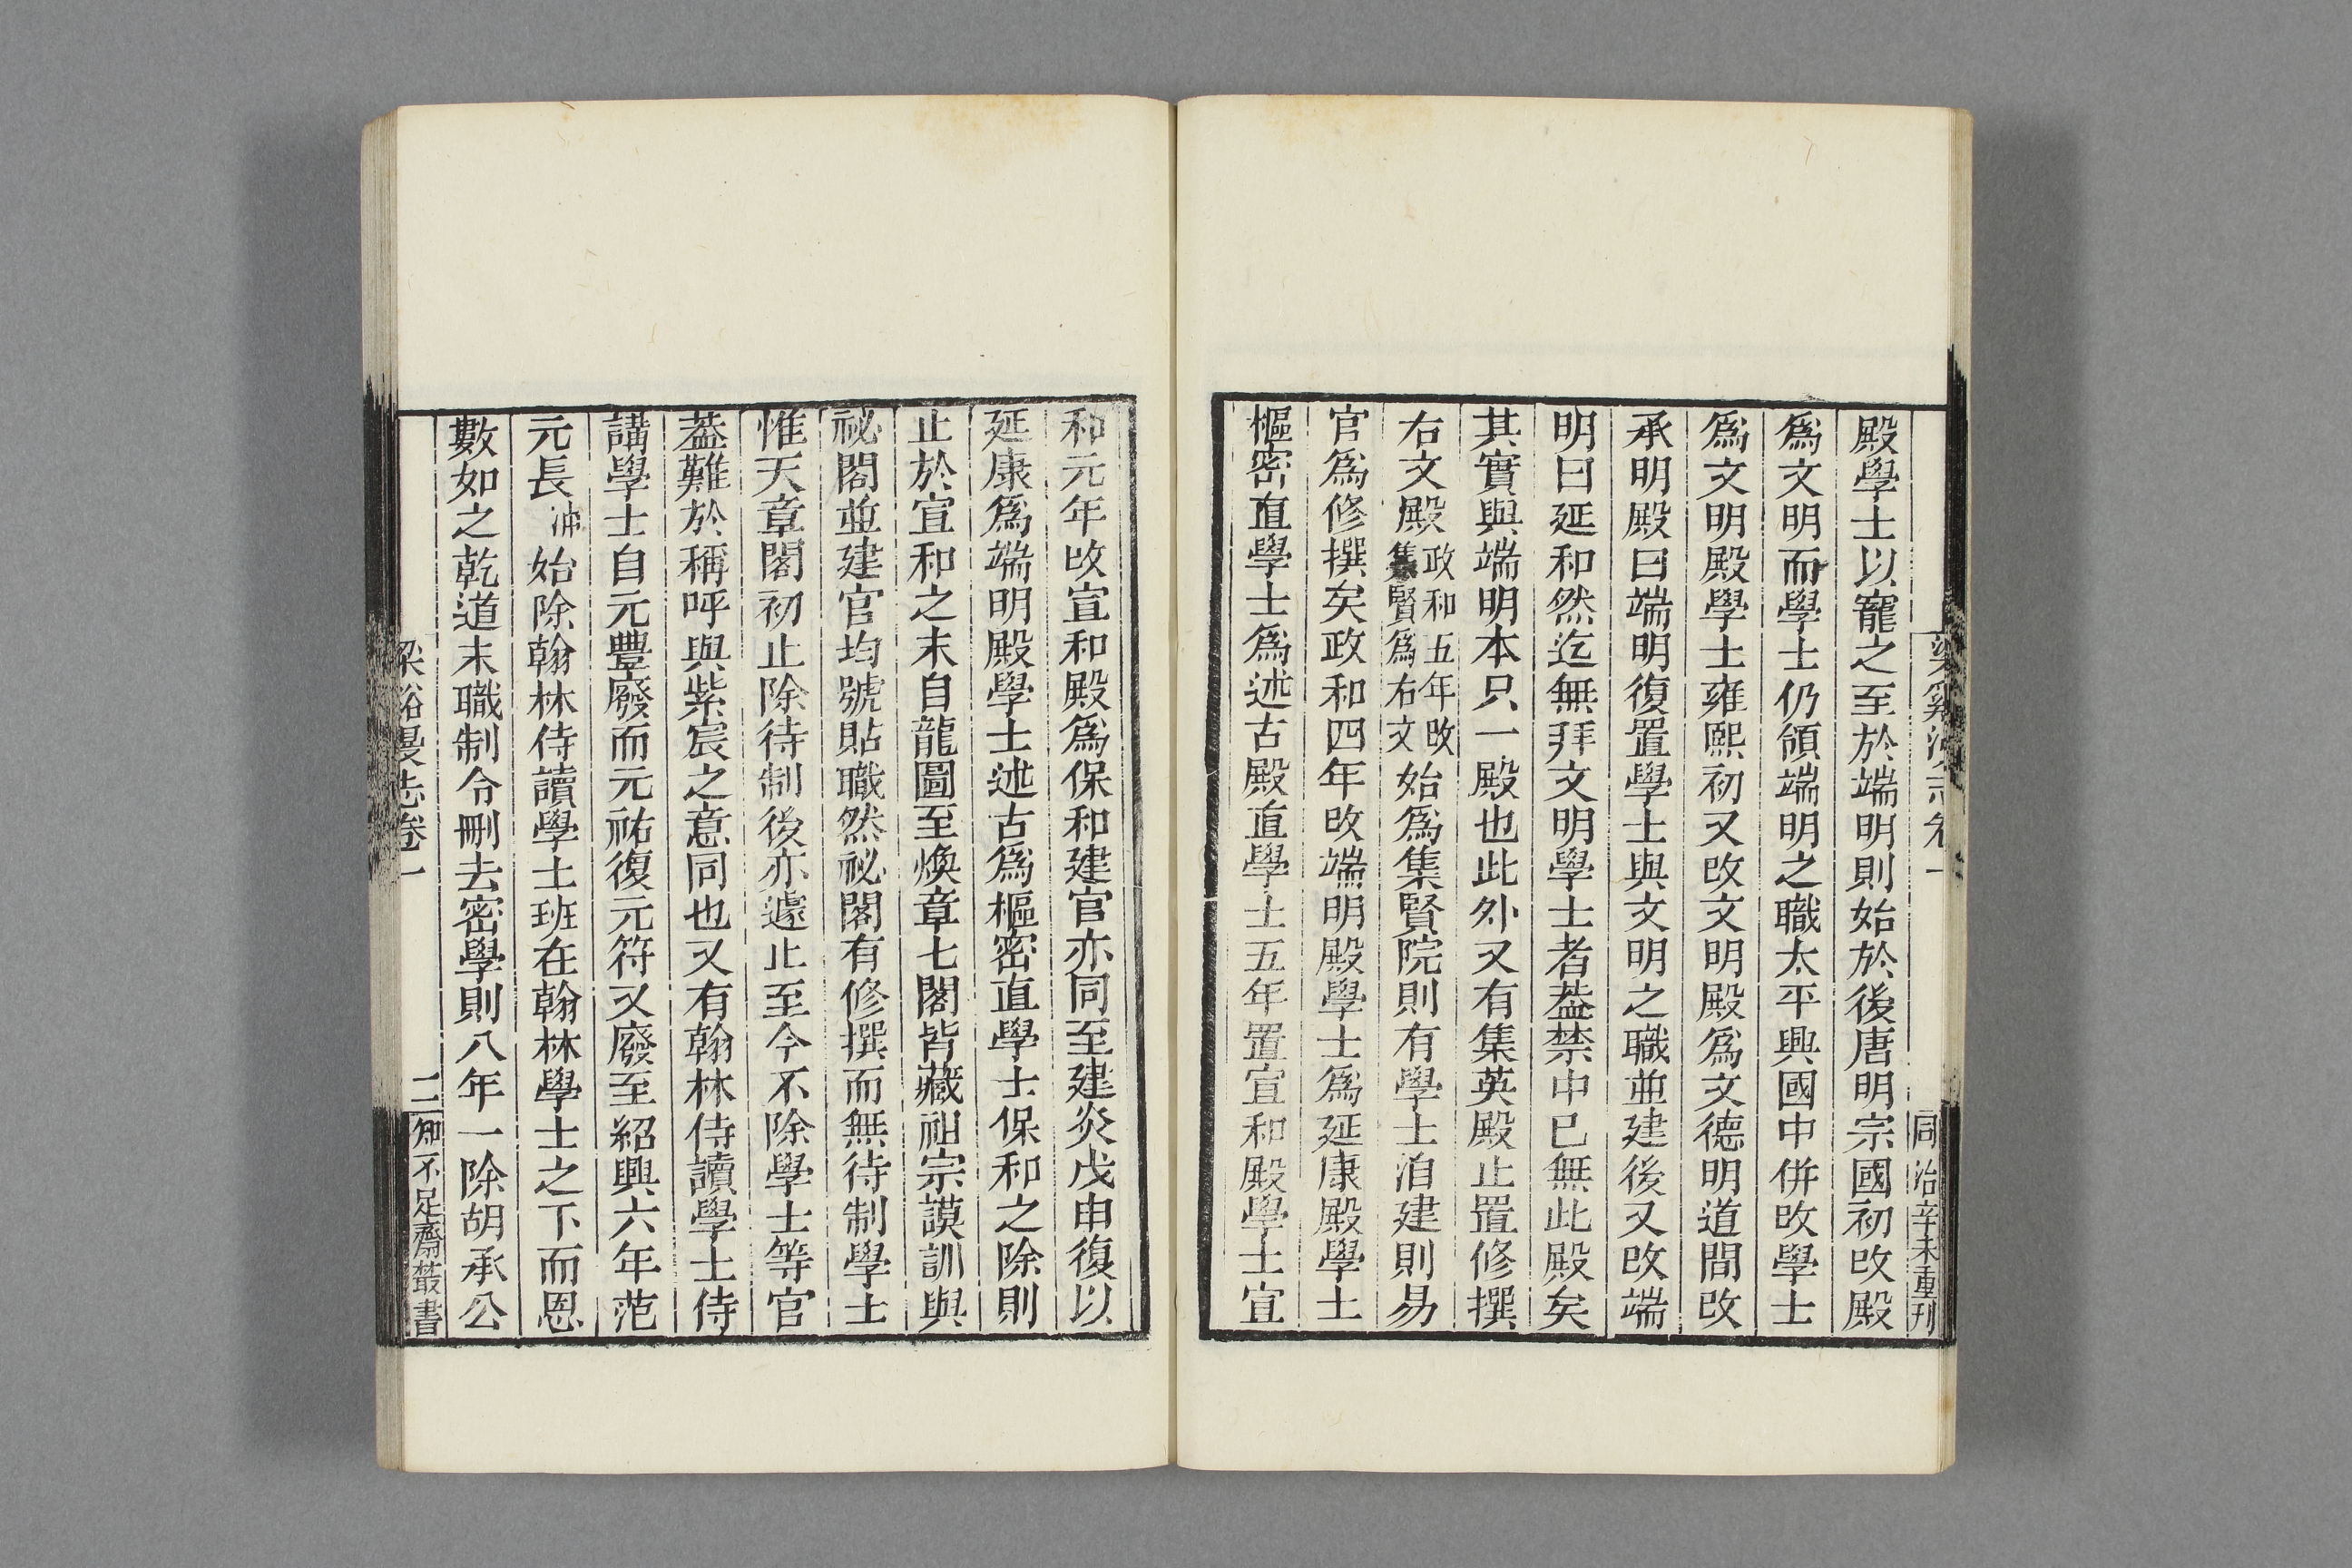 梁谿漫志卷一
同治辛未重刊
殿學士以寵之至於端明則始於後唐明宗國初改殿
爲文明而學士仍領端明之職太平興國中併改學士
爲文明殿學士雍熙初又改文明殿爲文德明道間改
承明殿曰端明復置學士與文明之職並建後又改端
明曰延和然迄無拜文明學士者蓋禁中已無此殿矣
其實與端明本只一殿也此外又有集英殿止置修撰
右文殿政和五年改集賢爲右文始爲集賢院則有學士洎建則易
官爲修撰矣政和四年改端明殿學士爲延康殿學士
樞密直學士爲述古殿直學士五年置宣和殿學士宣
和元年改宣和殿爲保和建官亦同至建炎戊申復以
延康爲端明殿學士述古爲樞密直學士保和之除則
止於宣和之末自龍圖至煥章七閣皆藏祖宗謨訓與
祕閣並建官均號貼職然祕閣有修撰而無待制學士
惟天章閣初止除待制後亦遽止至今不除學士等官
蓋難於稱呼與紫宸之意同也又有翰林侍讀學士侍
講學士自元豐廢而元祐復元符又廢至紹興六年范
元長沖始除翰林侍讀學士班在翰林學士之下而恩
數如之乾道末職制令刪去密學則八年一除胡承公
梁谿漫志卷一
二
知不足齋叢書